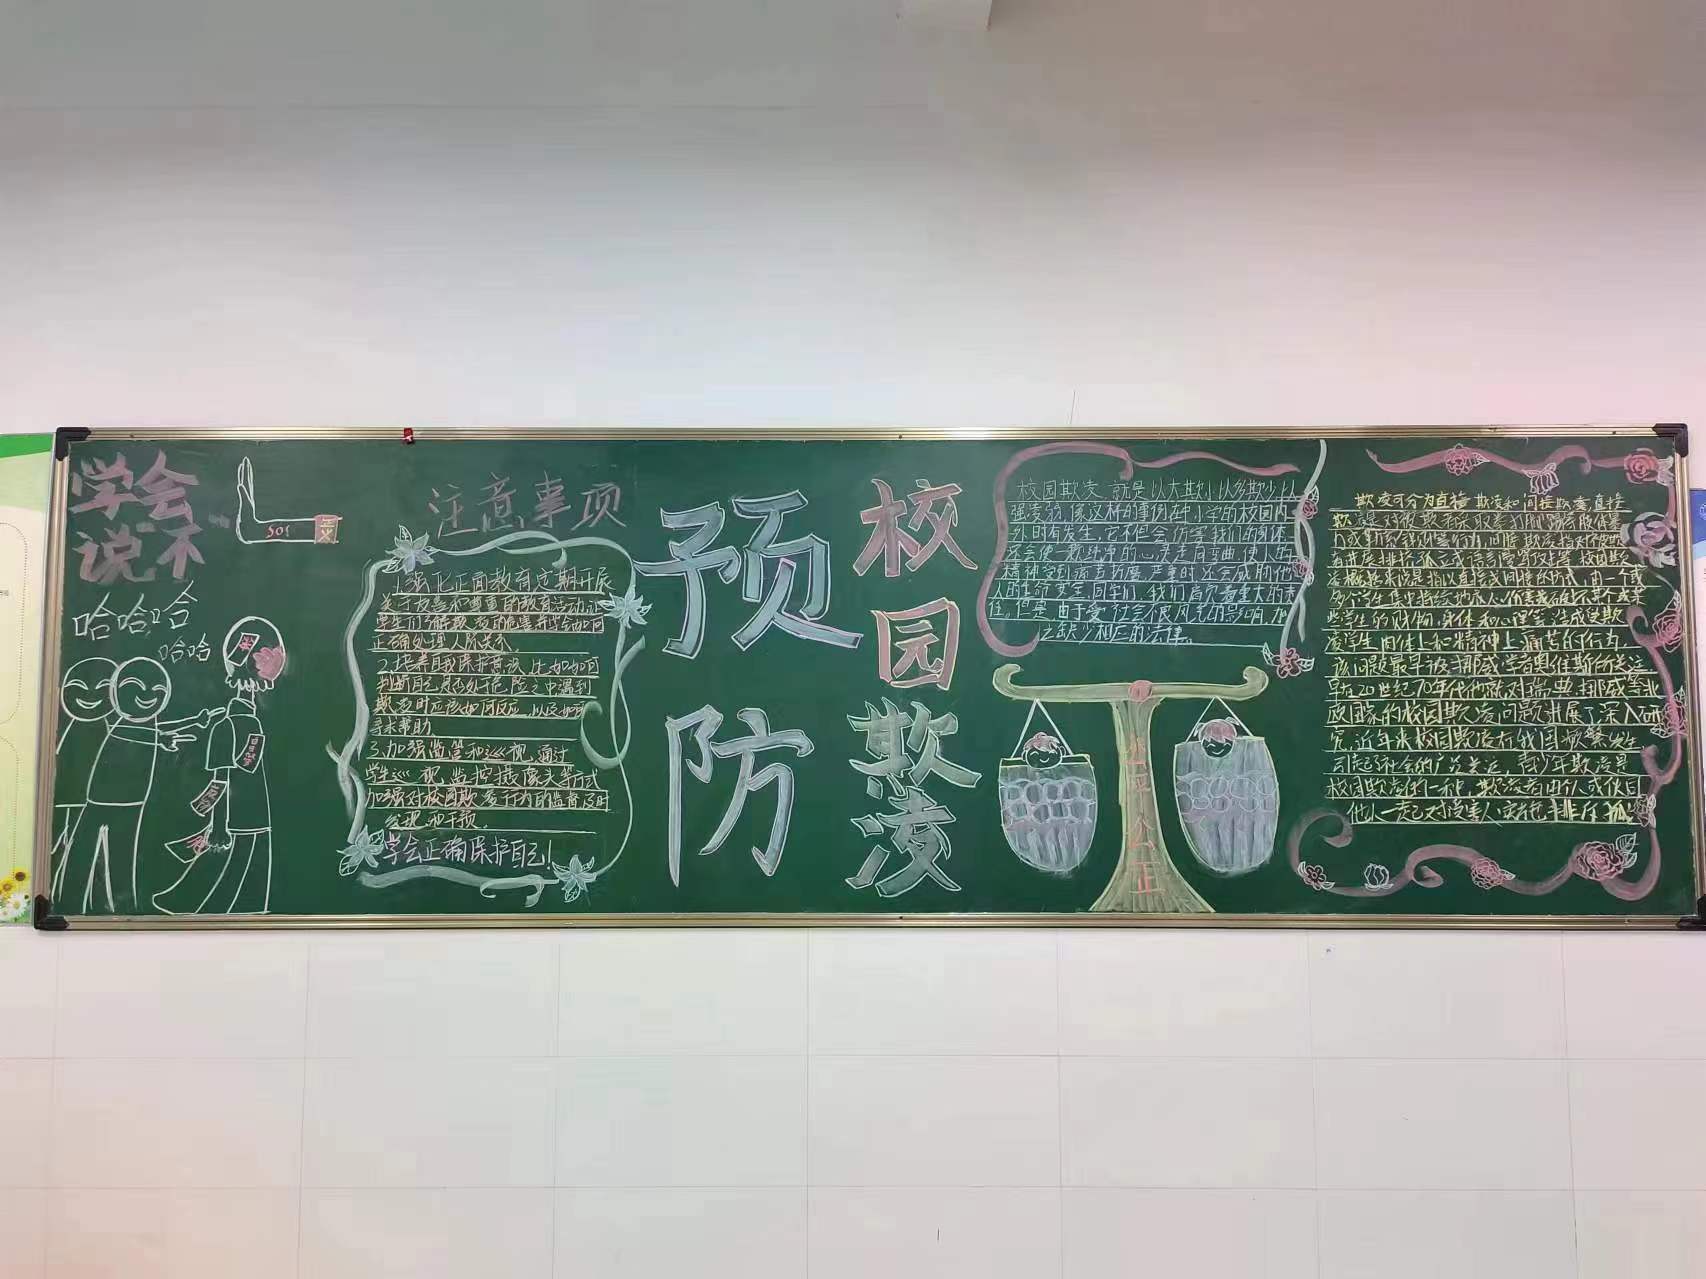 学会
说不
SOS
正义
哈哈哈
哈哈
注意事项
1.强化正面教育定期开展
关于友善和尊重的教育活动让
学生们了解欺凌的危害并学会如何
正确处理人际关系
2.培养自我保护意识,比如如何
判断自己是否处于危险之中遇到
欺凌时应该如何反应,以及如何
寻求帮助
3.加强监管和巡视,通过
学生巡视,监控摄像头等方式
加强对校园欺凌行为的监督及时
发现和干预
学会正确保护自己!
预防
校园欺凌
校园欺凌,就是以大欺小,以多欺少,以
强凌弱,像这样的事例在中小学的校园内
外时有发生,它不但会伤害我们的身体
还会使一颗纯净的心灵走向歪曲,使人的
精神受到痛苦折磨,严重时还会威胁他
人的生命安全,同学们,我们肩负着重大的责
任,但是,由于受社会不良风气的影响,加
之缺少相应的法律。
公平公正
欺凌可分为直接欺凌和间接欺凌,直接
多个学生集中持续地
些学生的财物,身体和心理等造成受欺
凌学生肉体上和精神上痛苦的行为
该问题最早被挪威学者奥维斯所关注
早在20世纪70年代他就对瑞典,挪威等北
欧国家的校园欺凌问题进展了深入研
究,近年来校园欺凌在我国频繁发生
引起社会的广泛关注,青少年欺凌是
校园欺凌的一种,欺凌者由个人或使同
他人一起对受害人实施